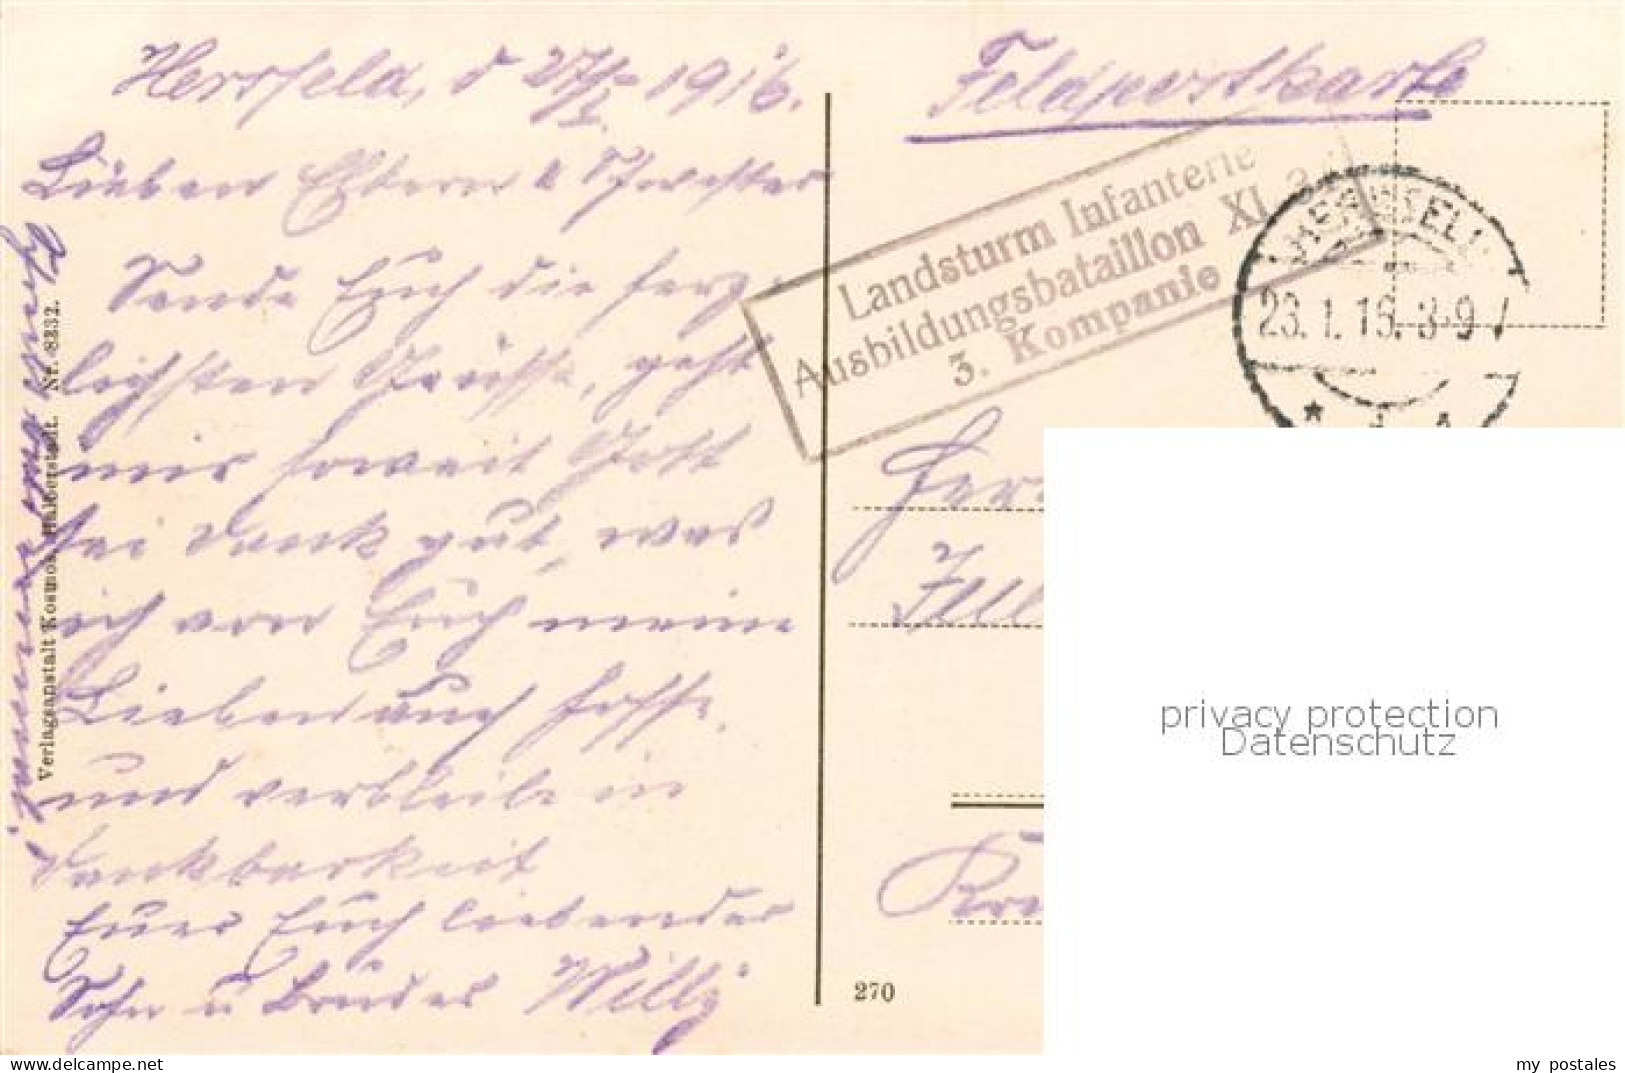 Hersfeld, d 27/I. 1916.
Lieben Eltern & Schwester
Sende Euch die herz-
lichsten Grüsse, geht
mir soweit Gott
sei Dank gut, was
ich von Euch meine
Lieben auch hoffe,
und verbleibe in
Dankbarkeit
Euer Euch liebender
Sohn u Bruder Willy
Verlagsanstalt Kosmos, Halberstadt. Nr. 8332.
270
Feldpostkarte
Landsturm Infanterie
Ausbildungsbataillon XI
3. Kompanie
HERSFELD
1.16. 3-9
privacy protection
Datenschutz
my postales